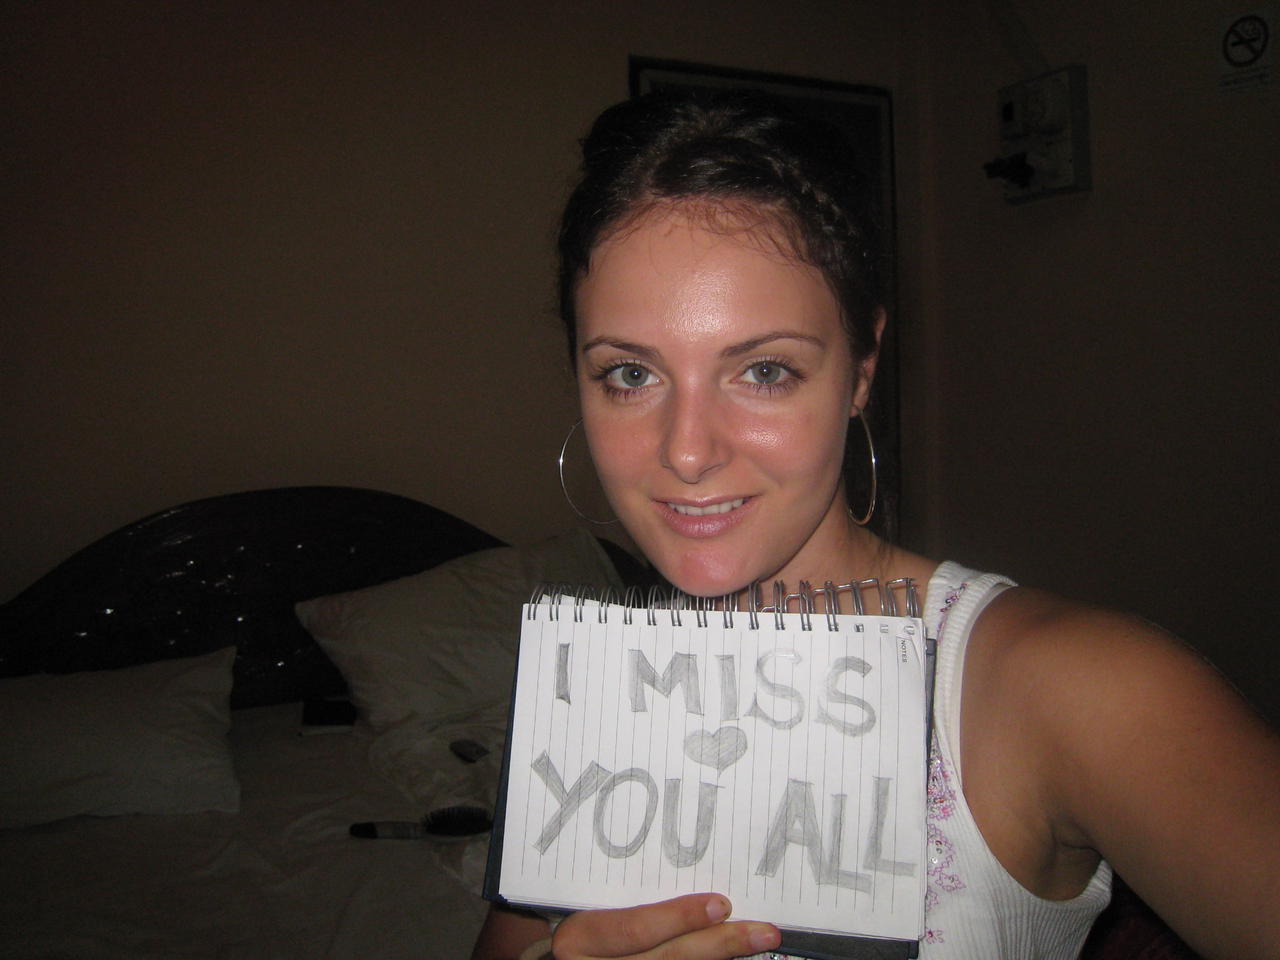 I MISS
YOU ALL
NOTES